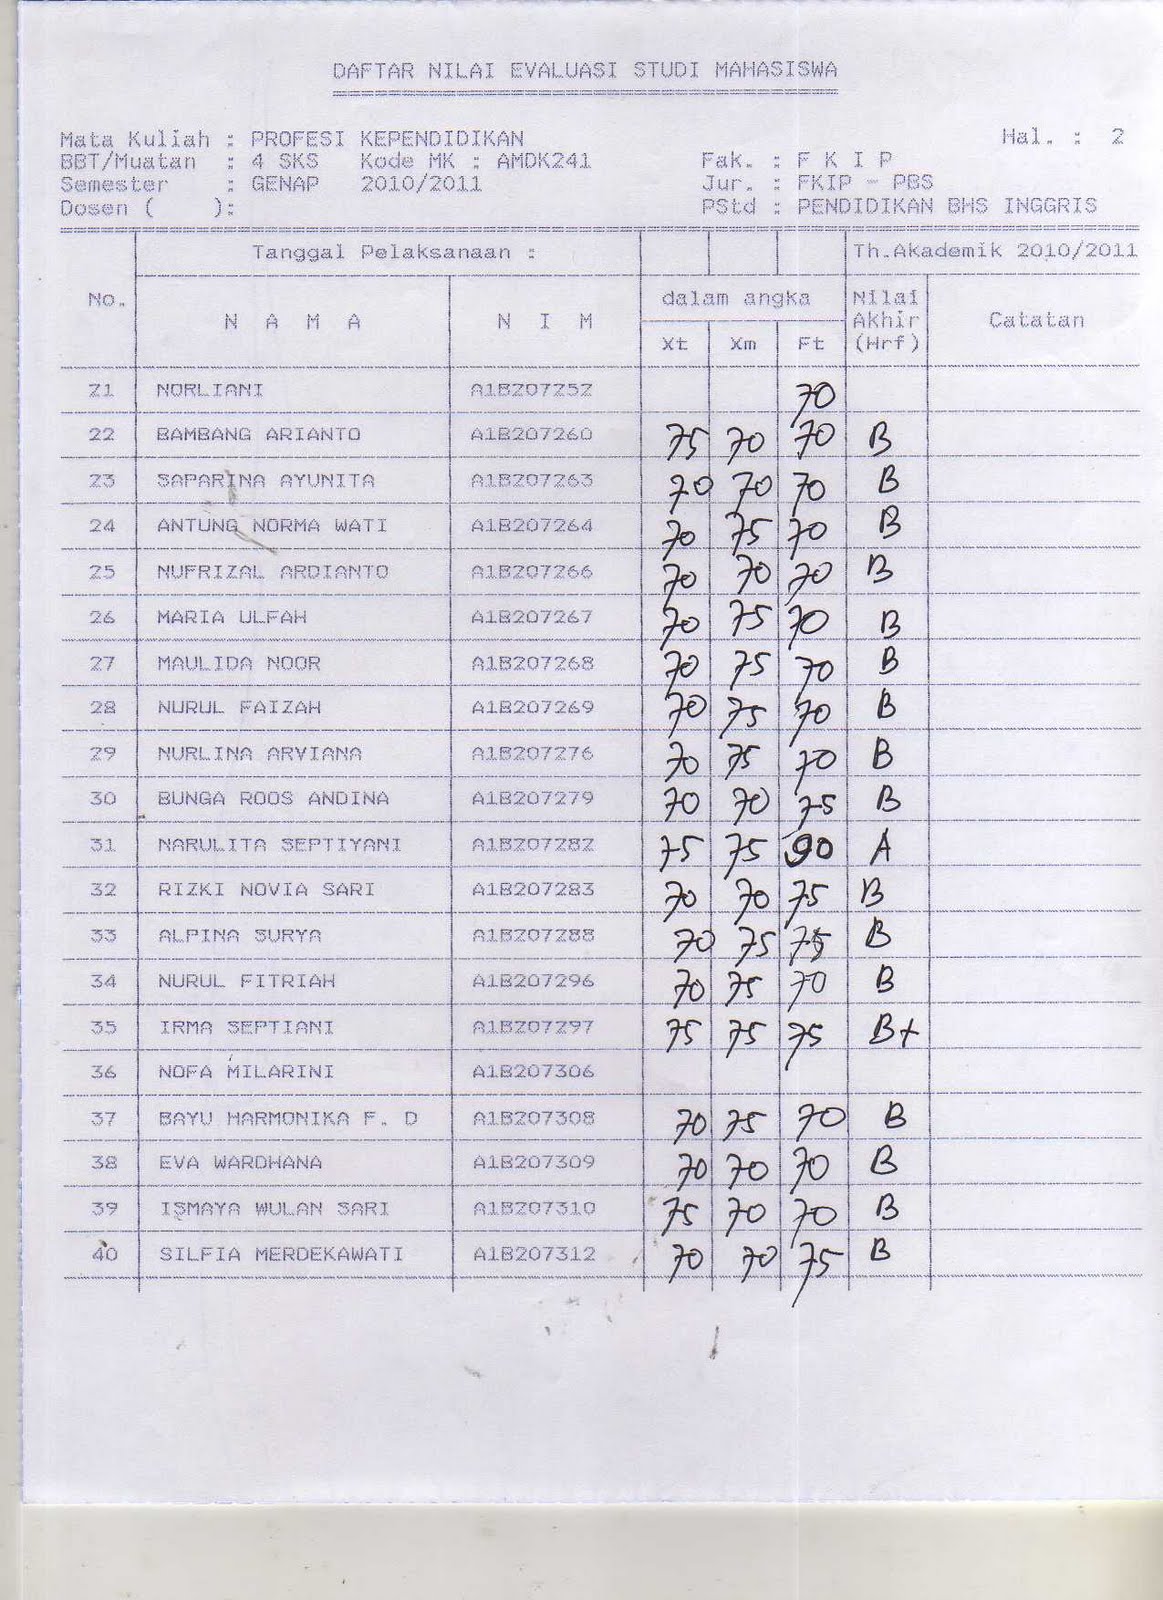 DAFTAR NILAI EVALUASI STUDI MAHASISWA
Mata Kuliah : PROFESI KEPENDIDIKAN Hal. : 2
BBT/Muatan : 4 SKS Kode MK : AMDK241 Fak. : F K I P
Semester : GENAP 2010/2011 Jur. : FKIP - PBS
Dosen ( ): PStd : PENDIDIKAN BHS INGGRIS
Tanggal Pelaksanaan : Th.Akademik 2010/2011
No. N A M A N I M dalam angka Nilai Akhir (Hrf) Catatan
Xt Xm Ft
21 NORLIANI A1B207252 70
22 BAMBANG ARIANTO A1B207260 75 70 70 B
23 SAPARINA AYUNITA A1B207263 70 70 70 B
24 ANTUNG NORMA WATI A1B207264 70 75 70 B
25 NUFRIZAL ARDIANTO A1B207266 70 70 70 B
26 MARIA ULFAH A1B207267 70 75 70 B
27 MAULIDA NOOR A1B207268 70 75 70 B
28 NURUL FAIZAH A1B207269 70 75 70 B
29 NURLINA ARVIANA A1B207276 70 75 70 B
30 BUNGA ROOS ANDINA A1B207279 70 70 75 B
31 NARULITA SEPTIYANI A1B207282 75 75 90 A
32 RIZKI NOVIA SARI A1B207283 70 70 75 B
33 ALPINA SURYA A1B207288 70 75 75 B
34 NURUL FITRIAH A1B207296 70 75 70 B
35 IRMA SEPTIANI A1B207297 75 75 75 B+
36 NOFA MILARINI A1B207306
37 BAYU HARMONIKA F. D A1B207308 70 75 70 B
38 EVA WARDHANA A1B207309 70 70 70 B
39 ISMAYA WULAN SARI A1B207310 75 70 70 B
40 SILFIA MERDEKAWATI A1B207312 70 70 75 B